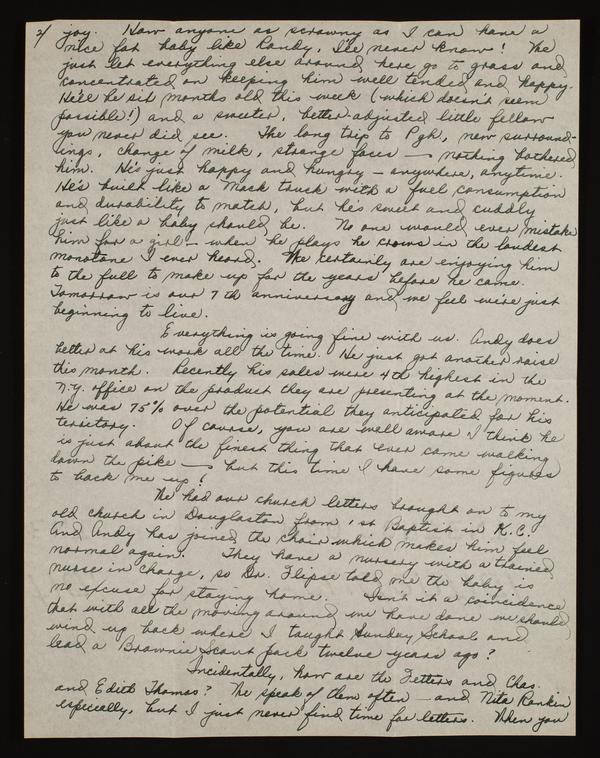 2/ joy. How anyone as scrawny as I can have a
nice fat baby like Randy, I'll never know! We
just let everything else around here go to grass and
concentrated on keeping him well tended and happy.
He'll be six months old this week (which doesn't seem
possible!) and a sweeter, better-adjusted little fellow
you never did see. The long trip to Pgh, new surround-
ings, change of milk, strange faces — nothing bothered
him. He's just happy and hungry — anywhere, anytime.
He's built like a Mack truck with a fuel consumption
and durability to match, but he's sweet and cuddly
just like a baby should be. No one would ever mistake
him for a girl — when he plays he crows in the loudest
monotone I ever heard. We certainly are enjoying him
to the full to make up for the years before he came.
Tomorrow is our 7th anniversary and we feel we're just
beginning to live.
Everything is going fine with us. Andy does
better at his work all the time. He just got another raise
this month. Recently his sales were 4th highest in the
N.Y. office on the product they are presenting at the moment.
He was 75% over the potential they anticipated for his
territory. Of course, you are well aware I think he
is just about the finest thing that ever came walking
down the pike — but this time I have some figures
to back me up!
We had our church letters brought on to my
old church in Douglaston from 1st Baptist in K.C.
And Andy has joined the choir which makes him feel
normal again. They have a nursery with a trained
nurse in charge, so Dr. Flipse told me the baby is
no excuse for staying home. Isn't it a coincidence
that with all the moving around we have done we should
wind up back where I taught Sunday School and
lead a Brownie Scout pack twelve years ago?
Incidentally, how are the Fetters and Chas.
and Edith Thomas? We speak of them often — and Nita Rankin
especially, but I just never find time for letters. When you